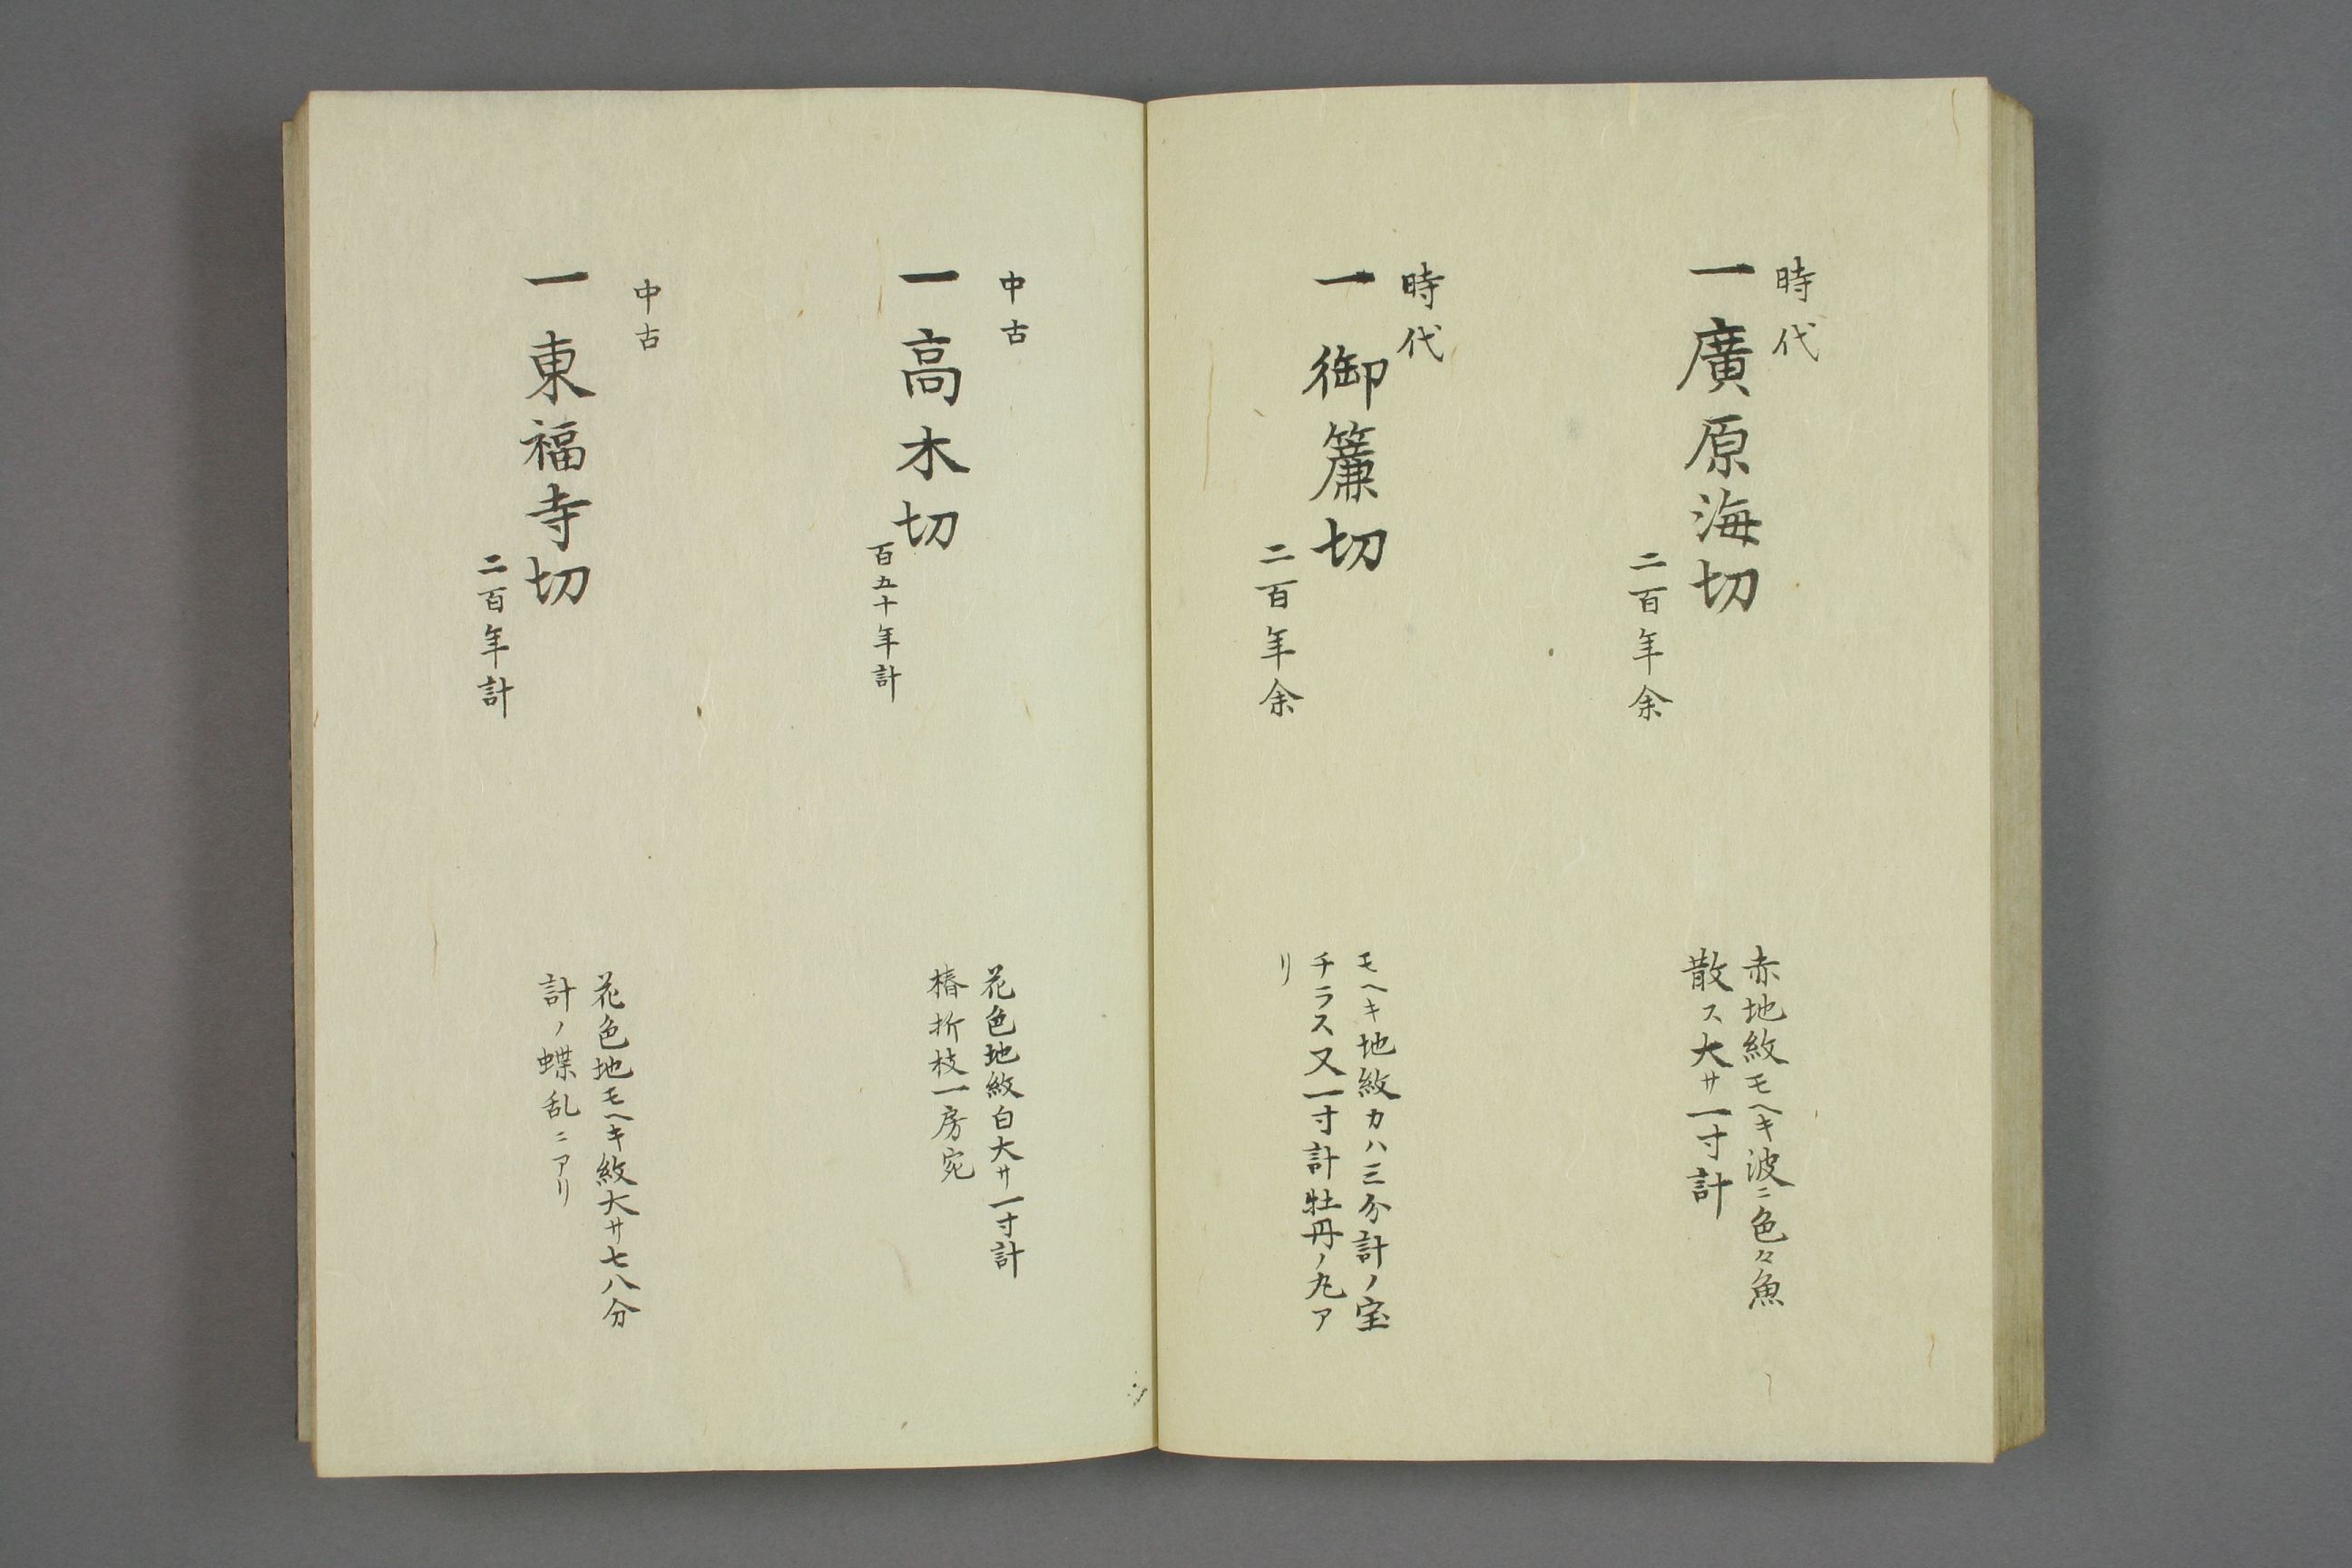 時代
一 廣原海切
二百年余
赤地紋モヘキ波ニ色々魚
散ス大サ一寸計
時代
一 御簾切
二百年余
モヘキ地紋カハ三分計ノ宝
チラス又一寸計牡丹ノ丸ア
リ
中古
一 高木切
百五十年計
花色地紋白大サ一寸計
椿折枝一房宛
中古
一 東福寺切
二百年計
花色地モヘキ紋大サ七八分
計ノ蝶乱ニアリ